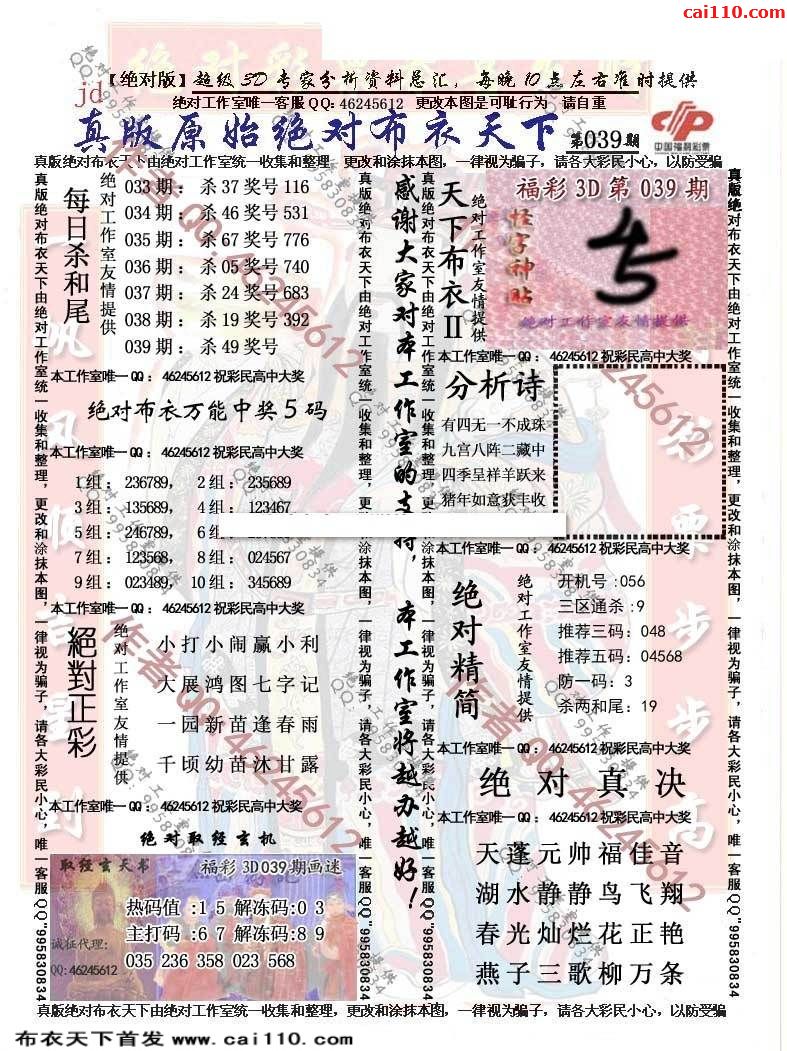 cai110.com
【绝对版】超级3D专家分析资料总汇，每晚10点左右准时提供
绝对工作室唯一客服QQ: 46245612 更改本图是可耻行为 请自重
jd
真版原始绝对布衣天下 第039期
中国福利彩票
真版绝对布衣天下由绝对工作室统一收集和整理，更改和涂抹本图，一律视为骗子，请各大彩民小心，以防受骗
真版绝对布衣天下由绝对工作室统一收集和整理，更改和涂抹本图，一律视为骗子，请各大彩民小心，唯一客服QQ"995830834
每日杀和尾
绝对工作室友情提供
033期：杀37奖号116
034期：杀46奖号531
035期：杀67奖号776
036期：杀05奖号740
037期：杀24奖号683
038期：杀19奖号392
039期：杀49奖号
本工作室唯一QQ：46245612祝彩民高中大奖
绝对布衣万能中奖5码
本工作室唯一QQ：46245612祝彩民高中大奖
1组：236789， 2组：235689
3组：135689， 4组：123467
5组：246789， 6组
7组：123568， 8组：024567
9组：023489， 10组：345689
本工作室唯一QQ：46245612祝彩民高中大奖
絕對正彩
绝对工作室友情提供
小打小闹赢小利
大展鸿图七字记
一园新苗逢春雨
千顷幼苗沐甘露
本工作室唯一QQ：46245612祝彩民高中大奖
绝对取经玄机
取经玄天书
福彩3D039期画迷
热码值:15解冻码:03
主打码:67解冻码:89
035 236 358 023 568
诚征代理:
QQ:46245612
真版绝对布衣天下由绝对工作室统一收集和整理，更改和涂抹本图，一律视为骗子，请各大彩民小心，唯一客服QQ"995830834
感谢大家对本工作室的支持，本工作室将越办越好！
真版绝对布衣天下由绝对工作室统一收集和整理，更改和涂抹本图，一律视为骗子，请各大彩民小心，唯一客服QQ"995830834
天下布衣II
绝对工作室友情提供
福彩3D第039期
怪字神贴
绝对工作室友情提供
本工作室唯一QQ：46245612祝彩民高中大奖
分析诗
有四无一不成珠
九宫八阵二藏中
四季呈祥羊跃来
猪年如意获丰收
本工作室唯一QQ：46245612祝彩民高中大奖
绝对精简
绝对工作室友情提供
开机号:056
三区通杀:9
推荐三码:048
推荐五码:04568
防一码:3
杀两和尾:19
本工作室唯一QQ：46245612祝彩民高中大奖
绝对真决
本工作室唯一QQ：46245612祝彩民高中大奖
天蓬元帅福佳音
湖水静静鸟飞翔
春光灿烂花正艳
燕子三歌柳万条
真版绝对布衣天下由绝对工作室统一收集和整理，更改和涂抹本图，一律视为骗子，请各大彩民小心，唯一客服QQ"995830834
真版绝对布衣天下由绝对工作室统一收集和整理，更改和涂抹本图，一律视为骗子，请各大彩民小心，以防受骗
布衣天下首发 www.cai110.com